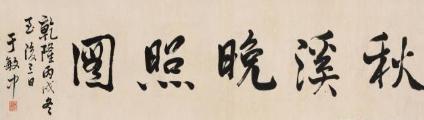 秋溪晚照圖
乾隆丙戌冬
至後三日
于敏中